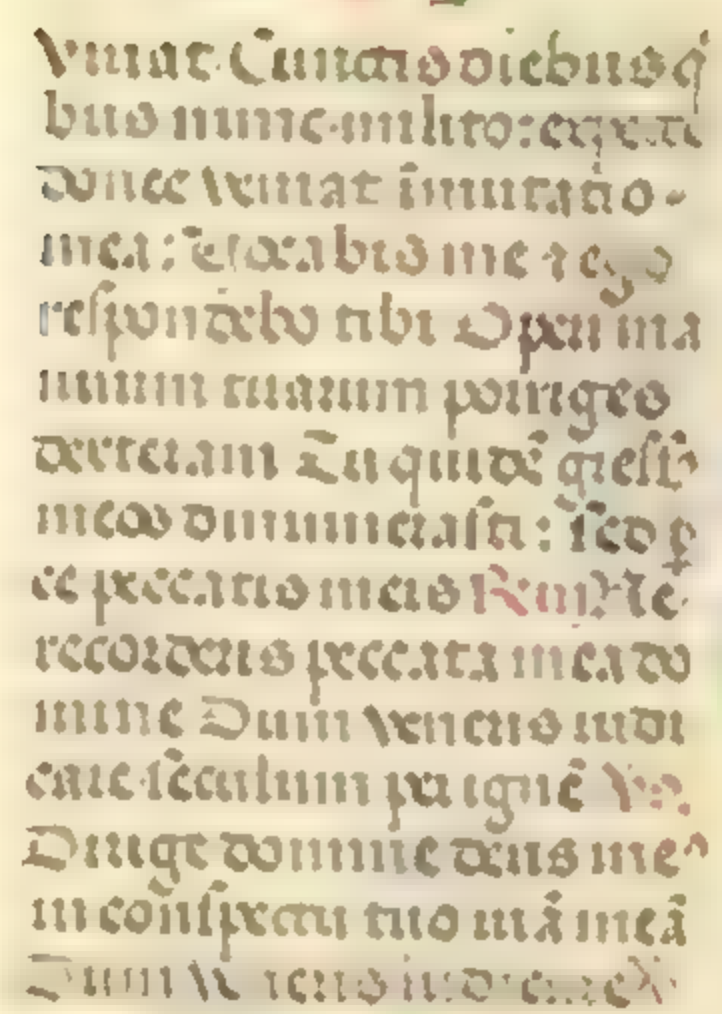 viuat Cunctis diebus q̇
bus nunc milito: expecto
donec veniat īmutatio
mea: Et vocabis me ⁊ ego
respondebo tibi Operi ma
nuum tuarum porriges
dexteram Tu quidē gress᷒
meos dinumerasti: sed ꝑ
ce peccatis meis Rx. Ne
recorderis peccata mea do
mine Dum veneris iudi
care seculum per ignē Vs.
Dirige domine deus me᷒
in conspectu tuo uiā meā
Dum veneris iudicare